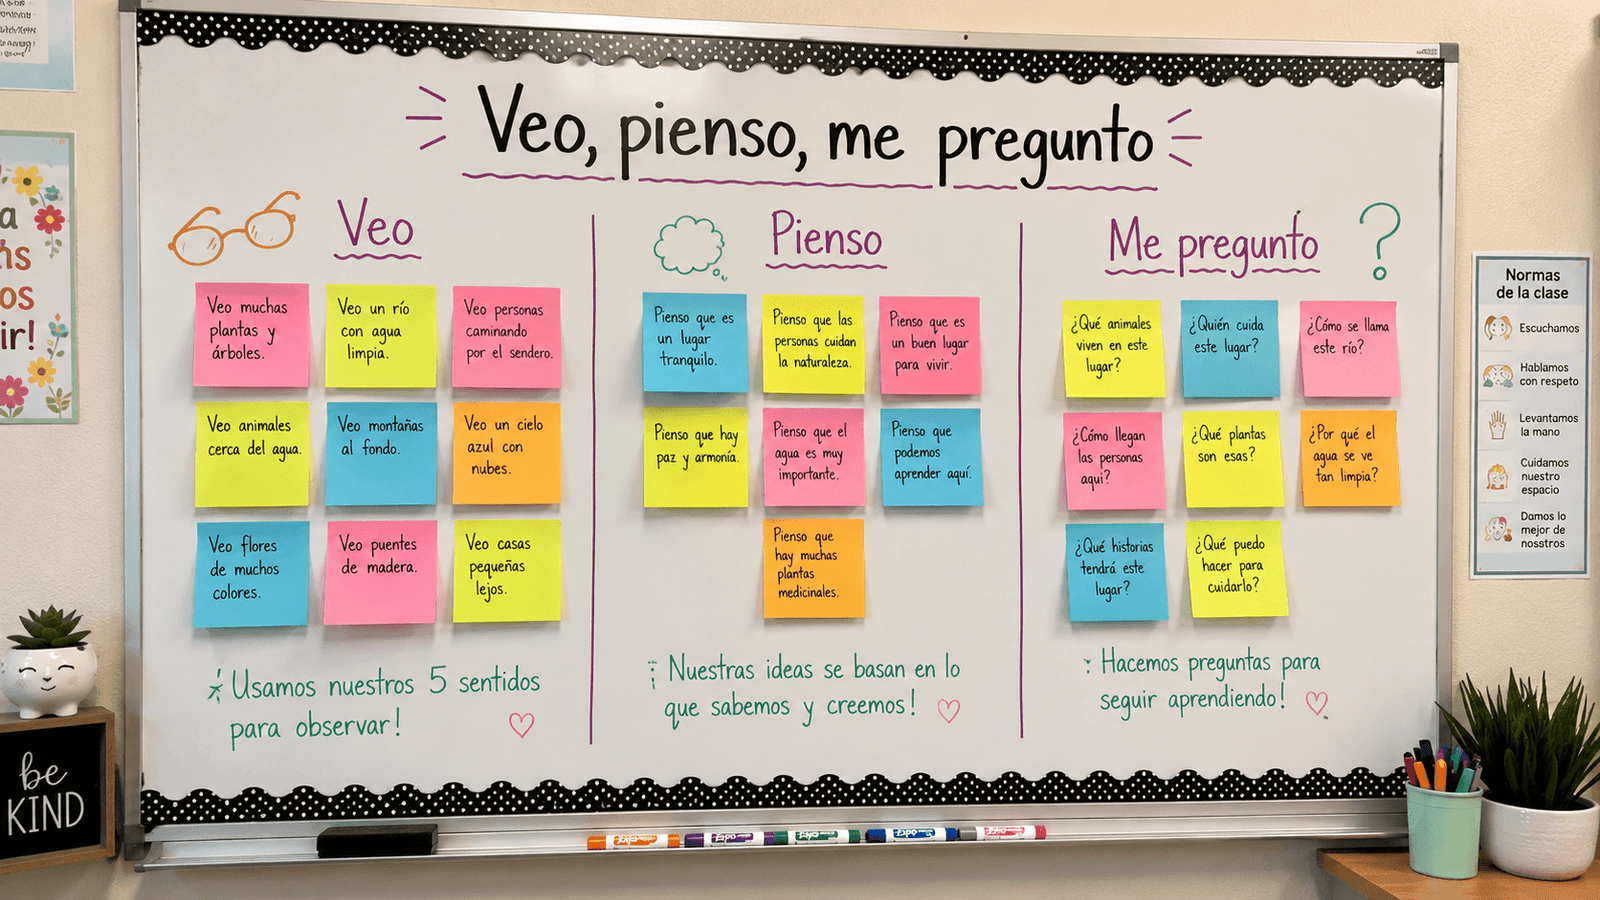 Veo, pienso, me pregunto
Veo
Veo muchas
plantas y
árboles.
Veo un río
con agua
limpia.
Veo personas
caminando
por el sendero.
Veo animales
cerca del agua.
Veo montañas
al fondo.
Veo un cielo
azul con
nubes.
Veo flores
de muchos
colores.
Veo puentes
de madera.
Veo casas
pequeñas
lejos.
Usamos nuestros 5 sentidos
para observar!
Pienso
Pienso que es
un lugar
tranquilo.
Pienso que las
personas cuidan
la naturaleza.
Pienso que es
un buen lugar
para vivir.
Pienso que hay
paz y armonía.
Pienso que el
agua es muy
importante.
Pienso que
podemos
aprender aquí.
Pienso que
hay muchas
plantas
medicinales.
¡Nuestras ideas se basan en lo
que sabemos y creemos!
Me pregunto
?
¿Qué animales
viven en este
lugar?
¿Quién cuida
este lugar?
¿Cómo se llama
este río?
¿Cómo llegan
las personas
aquí?
¿Qué plantas
son esas?
¿Por qué el
agua se ve
tan limpia?
¿Qué historias
tendrá este
lugar?
¿Qué puedo
hacer para
cuidarlo?
Hacemos preguntas para
seguir aprendiendo!
Normas
de la clase
Escuchamos
Hablamos
con respeto
Levantamos
la mano
Cuidamos
nuestro
espacio
Damos lo
mejor de
nosstros
a
os
ir!
be
KIND